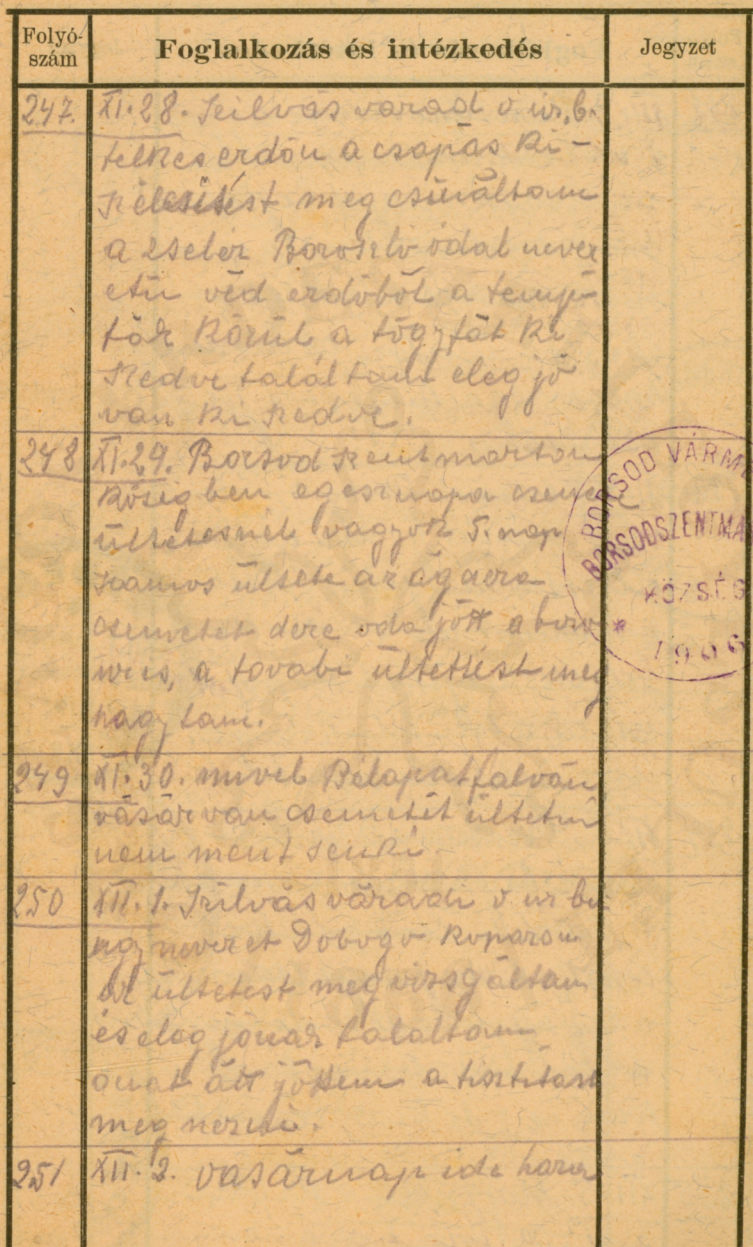 Folyó-
szám
Foglalkozás és intézkedés
Jegyzet
247. XI. 28. Szilvás várad v úr. b.
telkes erdőn a csapás ki-
meg csináltam
a zseler Boroszló oldal nevez
etü véd erdőből a temp-
lár körül a tögyfát ki
szedve találtam eleg jó
van ki szedve.
248 XI. 29. Borsod szent marton
községben egesznapa cseme
ültetesnél vagyok 5. nap
számos ültete az ágacra
csemetet dere oda jött a
a tovabi ültettést meg
hagytam.
BORSOD VÁRM
BORSODSZENTMÁ
KÖZSÉG
1906
249 XI. 30. mivel Bélapatfalván
vásár van csemetét ültetni
nem ment senki.
250 XII. 1. Szilvás váradi v úr. bir
ugy nevezet Dobogó koparon
az ültetest megvizsgáltam
és eleg jónak talaltam
onat átt jöttem a tisztítást
meg nezni.
251 XII. 2. vasárnap ide haza